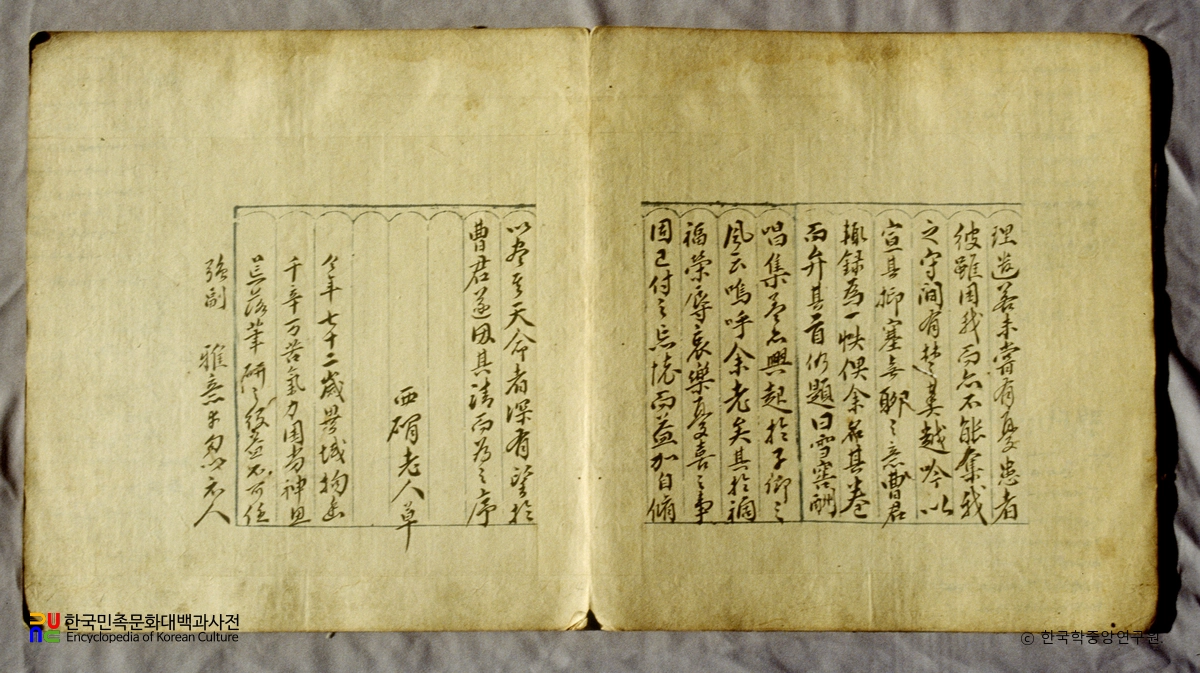 理遣若未嘗有憂患者
彼雖困我而亦不能奪我
之守間有楚奏越吟以
宣其抑塞無聊之意曹君
輒錄爲一帙俣余名其卷
而弁其首仍題曰雪窖酬
唱集盖亦興起於子卿之
風云嗚呼余老矣其於禍
福榮辱哀樂憂喜之事
固已付之忘境而益加自脩
以盡其天命者深有望於
曹君遂因其請而爲之序
西磵老人草
今年七十二歲異域拘幽
千辛万苦氣力困劣神思
荒落筆硏之役益不可任
強副 雅意幸勿忽示人
한국민족문화대백과사전
Encyclopedia of Korean Culture
© 한국학중앙연구원